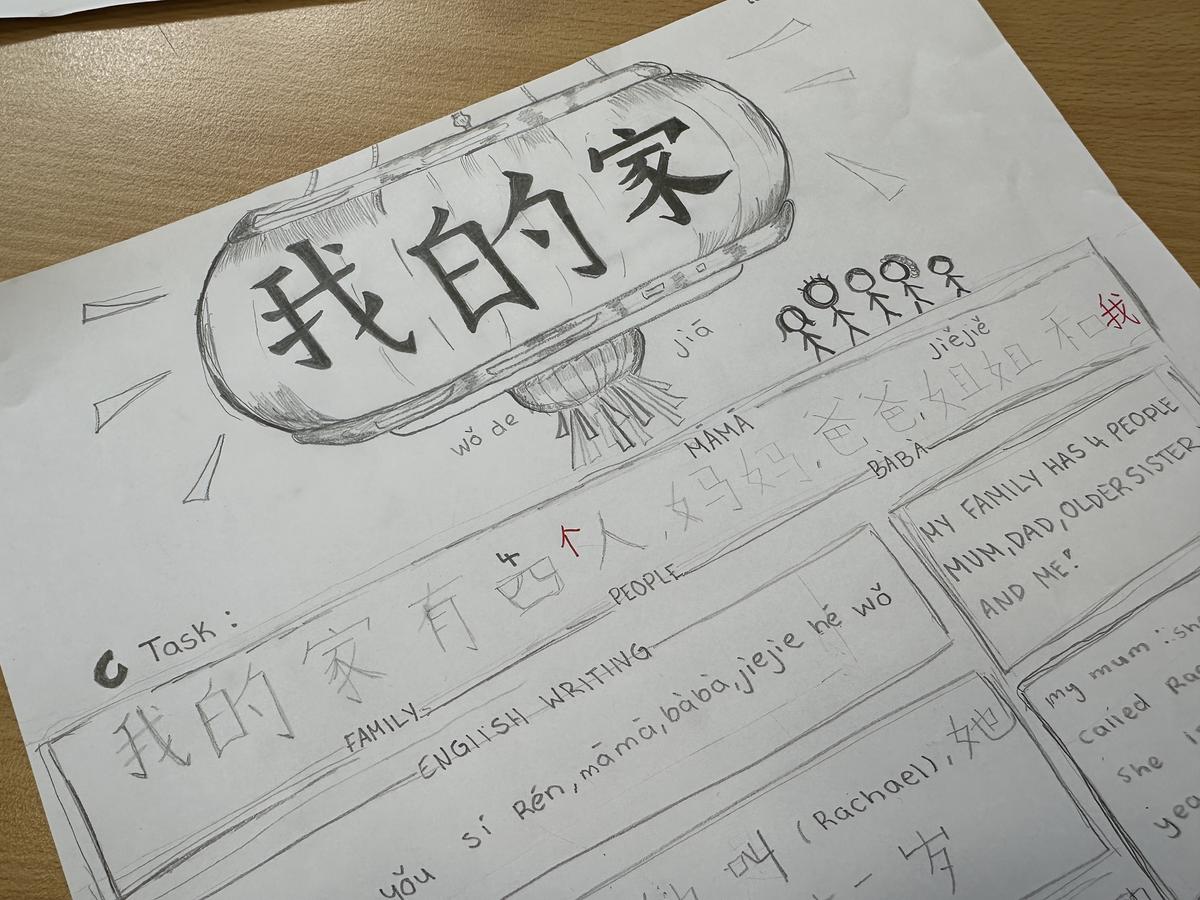 我的家
wǒ de
jiā
C Task :
jiějiě
MĀMĀ
4
我的家有四个人,妈妈,爸爸,姐姐和我
FAMILY
PEOPLE
BÀBÀ
ENGLISH WRITING
yǒu sí Rén, māmā, bàbà, jiejie hé wǒ
MY FAMILY HAS 4 PEOPLE
MUM, DAD, OLDER SISTER
AND ME!
叫 (Rachael), 她
一岁
my mum : she
called
she